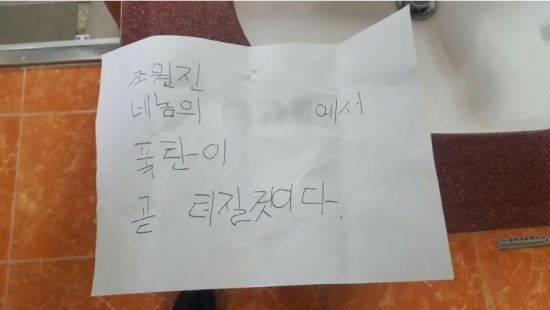 조원진
네놈의 에서
폭탄이
곧 터질것이다.